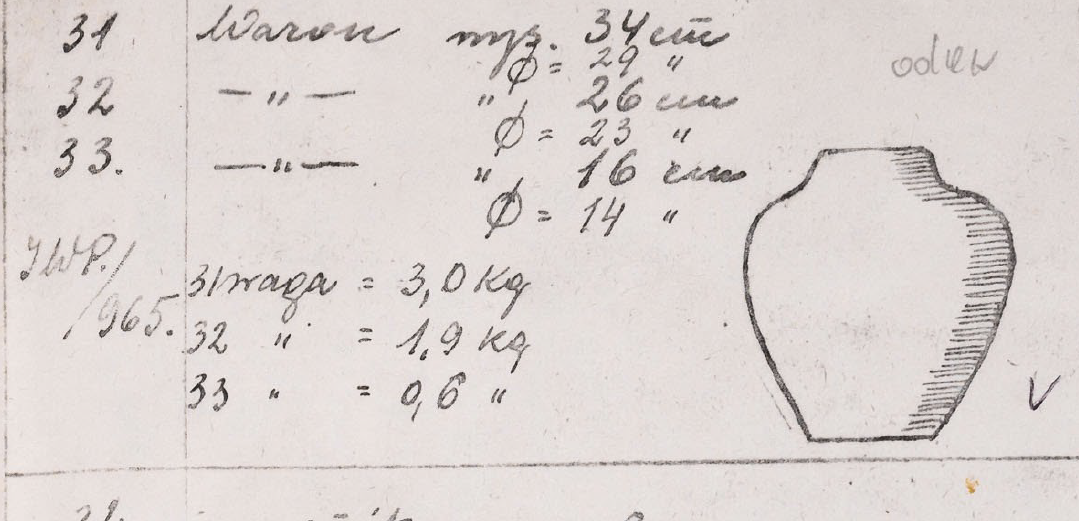 31 Wazon wys. 34 cm
Ø = 29 "
odlew
32 — " — " 26 cm
Ø = 23 "
33. — " — " 16 cm
Ø = 14 "
IWP./
/965.
31 waga = 3,0 kg
32 " = 1,9 kg
33 " = 0,6 "
V